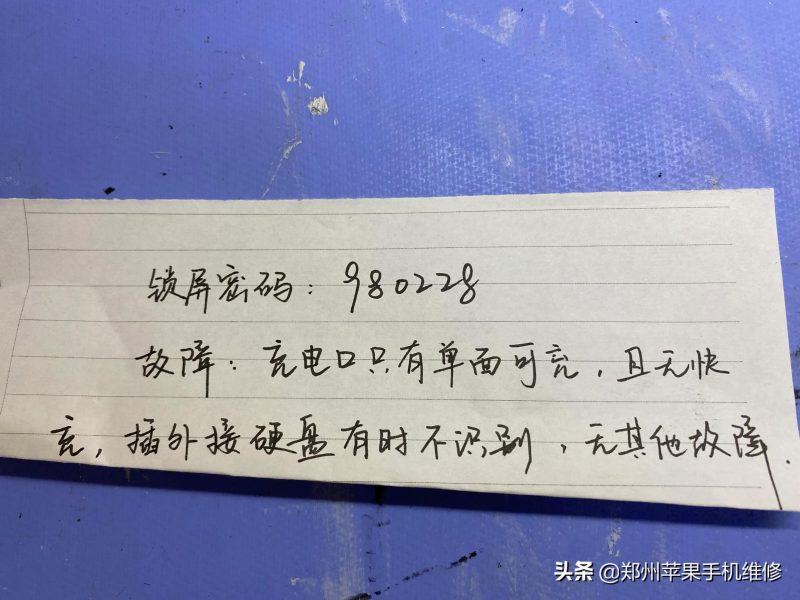 锁屏密码：980228
故障：充电口只有单面可充，且无快
充，插外接硬盘有时不识别，无其他故障.
头条 @郑州苹果手机维修